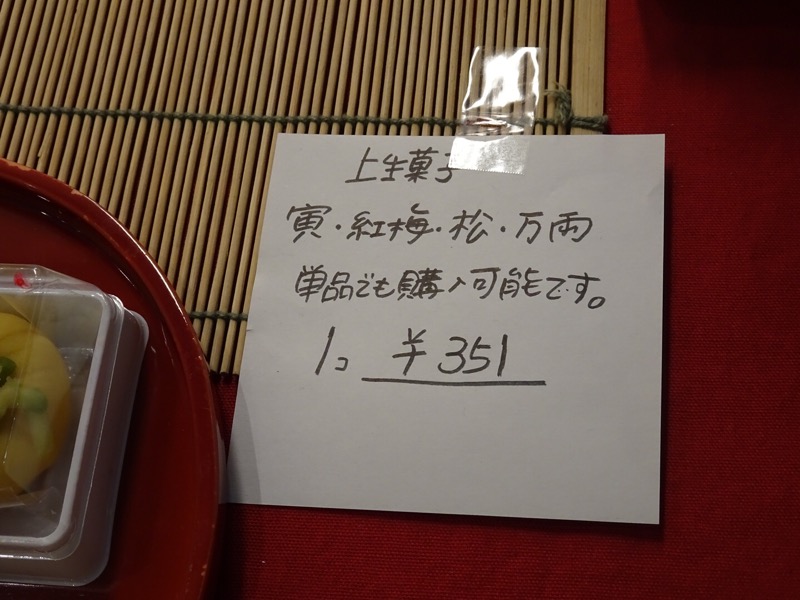 上生菓子
寅・紅梅・松・万両
単品でも購入可能です。
1コ ¥351